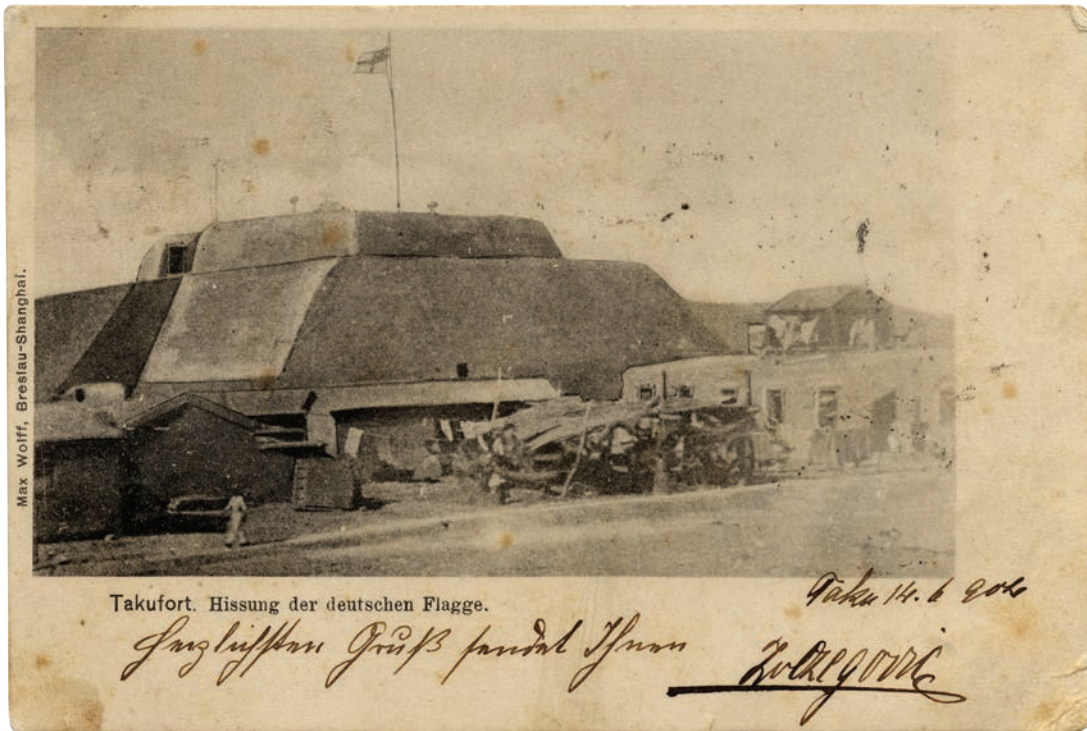 Max Wolff, Breslau-Shanghai.
Takufort. Hissung der deutschen Flagge.
Taku 14. 6
Herzlichsten Gruß sendet Ihnen